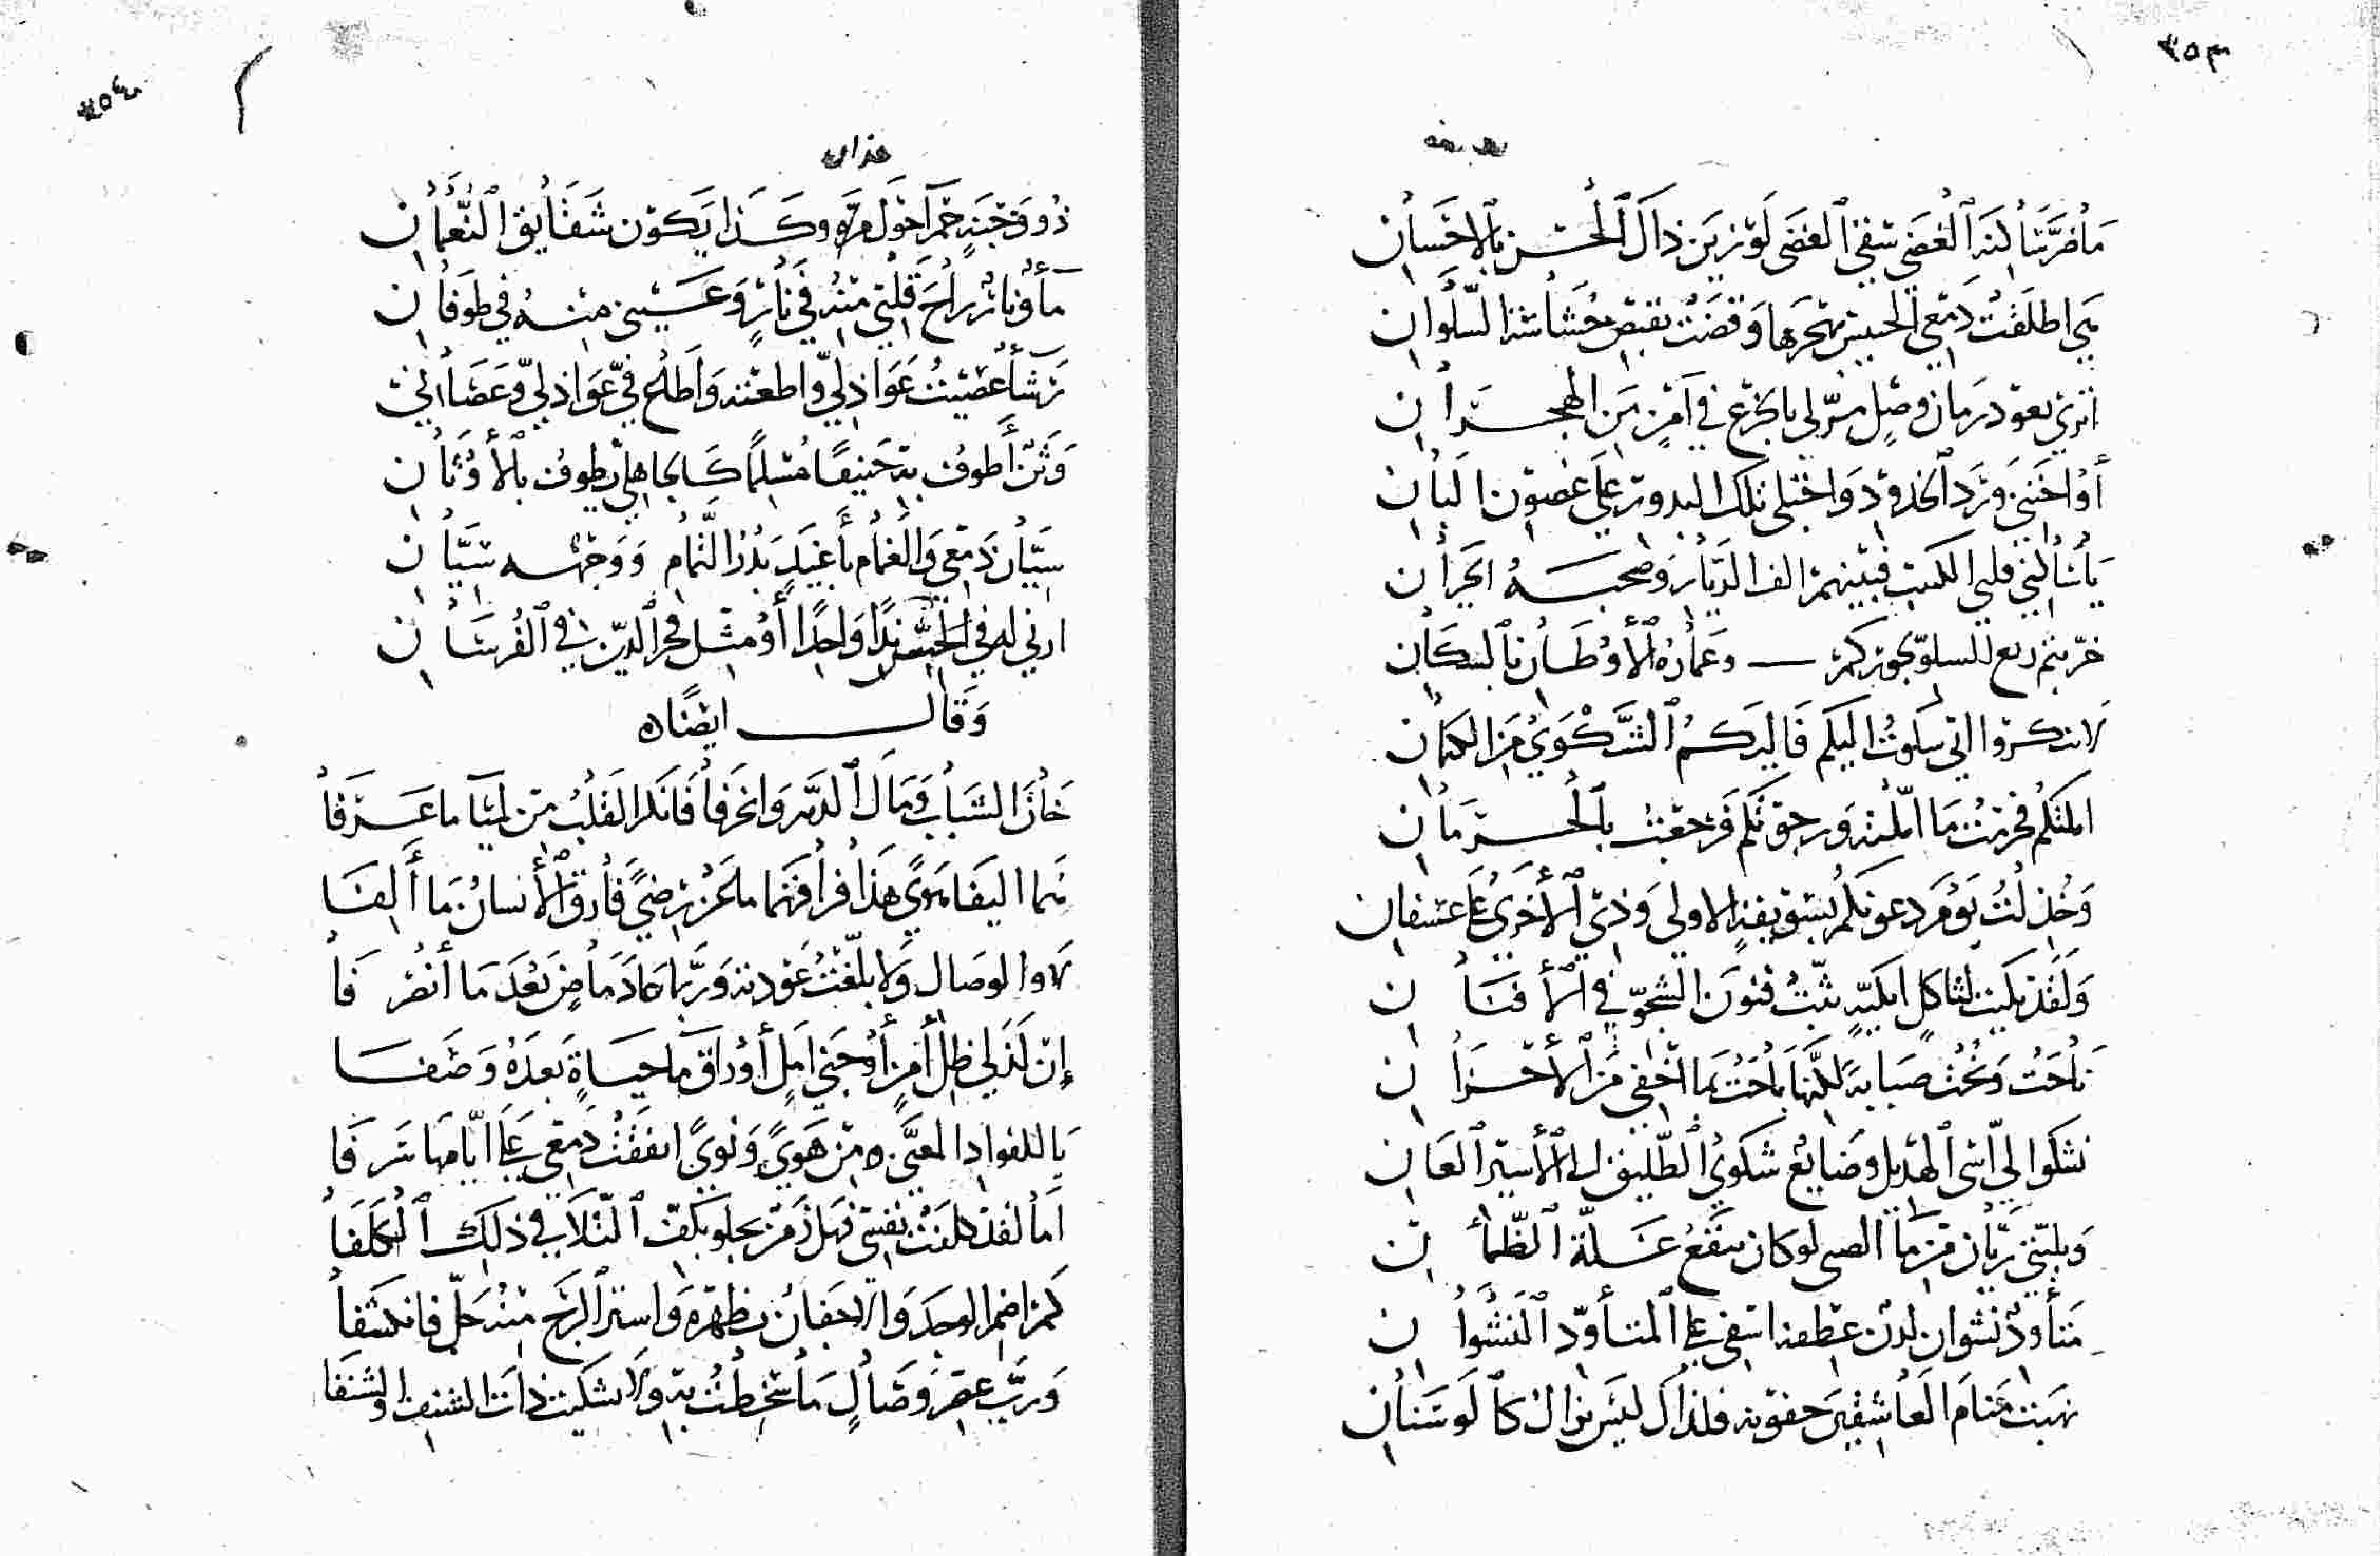 ٣٥٣
ما ضر ساكنة الغضى سقي الغضى لو زين ذاك الحسن بالاحسان
اطلقت دمعي الحبيس بهجرها وقضت بقبض حشاشة السلوان
اترى يعود زمان وصل مر لي بالجزع في امن من الهجران
أو اجتني ورد الخدود واجتلي تلك البدور على غصون البان
يا سائلي قلبي الكئيب الديار وصحبه الجيران
خربتم ربع السلو بجوركم وعمارة الأوطان بالسكان
لا تنكروا اني سلوت اليكم الشكوى من الكتمان
املتكم فحرمت ما املته ورجوتكم فرجعت بالحرمان
وخذلت يوم دعوتكم بسويقة الاولى وذي الأخرى على عسفان
ولقد بكيت لثاكل ابكية بثت فنون الشجو في الأفنان
ناحت ونحت صبابة لكنها باحت بما اخفي من الأحزان
تشكوا لي اسى الهديل وضايع شكوى الطليق الى الأسير العان
وبليتي ريان من ماء الصبى لو كان ينقع غلة الظمآن
متأود نشوان لدن عطفه اسفي على المتأود النشوان
نهبت منام العاشقين جفونه فلذاك ليس يزال كالوسنان
٣٥٤
عذاره
ذو وجنة حمرا حول وكذا يكون شقايق النعمان
ماء ونار راح قلبي منه في نار وعيني منه في طوفان
رشأ عصيت عواذلي واطعته واطاع في عواذلي وعصاني
وثن أطوف به حنيفا مسلما كالجاهلي يطوف بالأوثان
سيان دمعي والغمام بأغيد بدر التمام ووجهه سيان
ارني له في الحسن ندا واحدا أو مثل فخر الدين في الفرسان
وقال ايضا
خان الشباب ومال الدهر وانحرفا فانكر القلب من لمياء ما عرفا
هما اليفا هوى هذا فراقهما ما عن رضى فارق الأنسان ما ألفا
لا والوصال ولا بلغت عودته وربما عاد ماض بعد ما أنصرفا
إن لذ لي ظل أمن أو جنى امل أوراق ماء حياة بعده وصفا
يا للفواد المعنى من هوى ونوى انفقت دمعي على ايامها سرفا
اما لقد كلفت نفسي فهل زمن يجلو بكف التلافي ذلك الكلفا
كم اضمر الوجد والاجفان تظهره واستر البرح منه جل فانكشفا
ورب عصر وصال ما سخطت به ولا شكيت ذات الشنف والشنفا